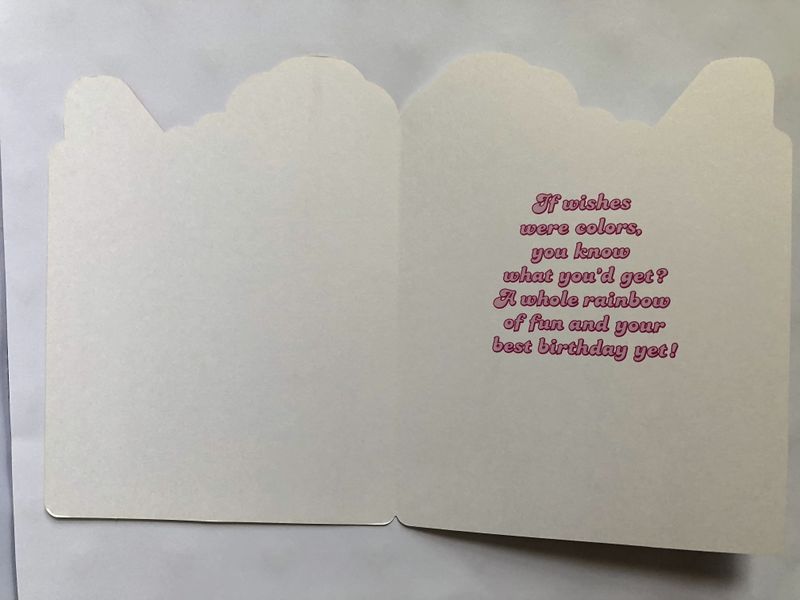 If wishes
were colors,
you know
what you'd get?
A whole rainbow
of fun and your
best birthday yet!